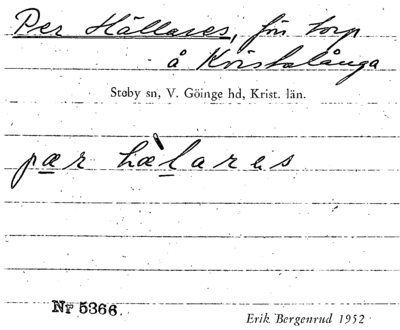 Per Hällares, f.n. torp
å Kvistalånga
Støby sn, V. Göinge hd, Krist. län.
pær hælares
Nr 5366.
Erik Bergenrud 1952